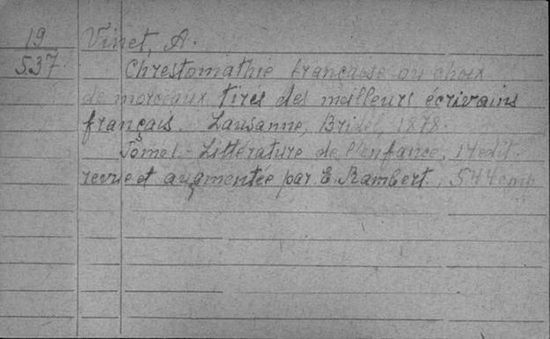 19
537
Vinet, A.
Chrestomathie française ou choix
de morceaux tires des meilleurs écrivains
français. Lausanne, Bridel, 1878.
Tome I. Littérature de l'enfance, 14 edit.
revue et augmentée par E. Rambert, 544 cmp